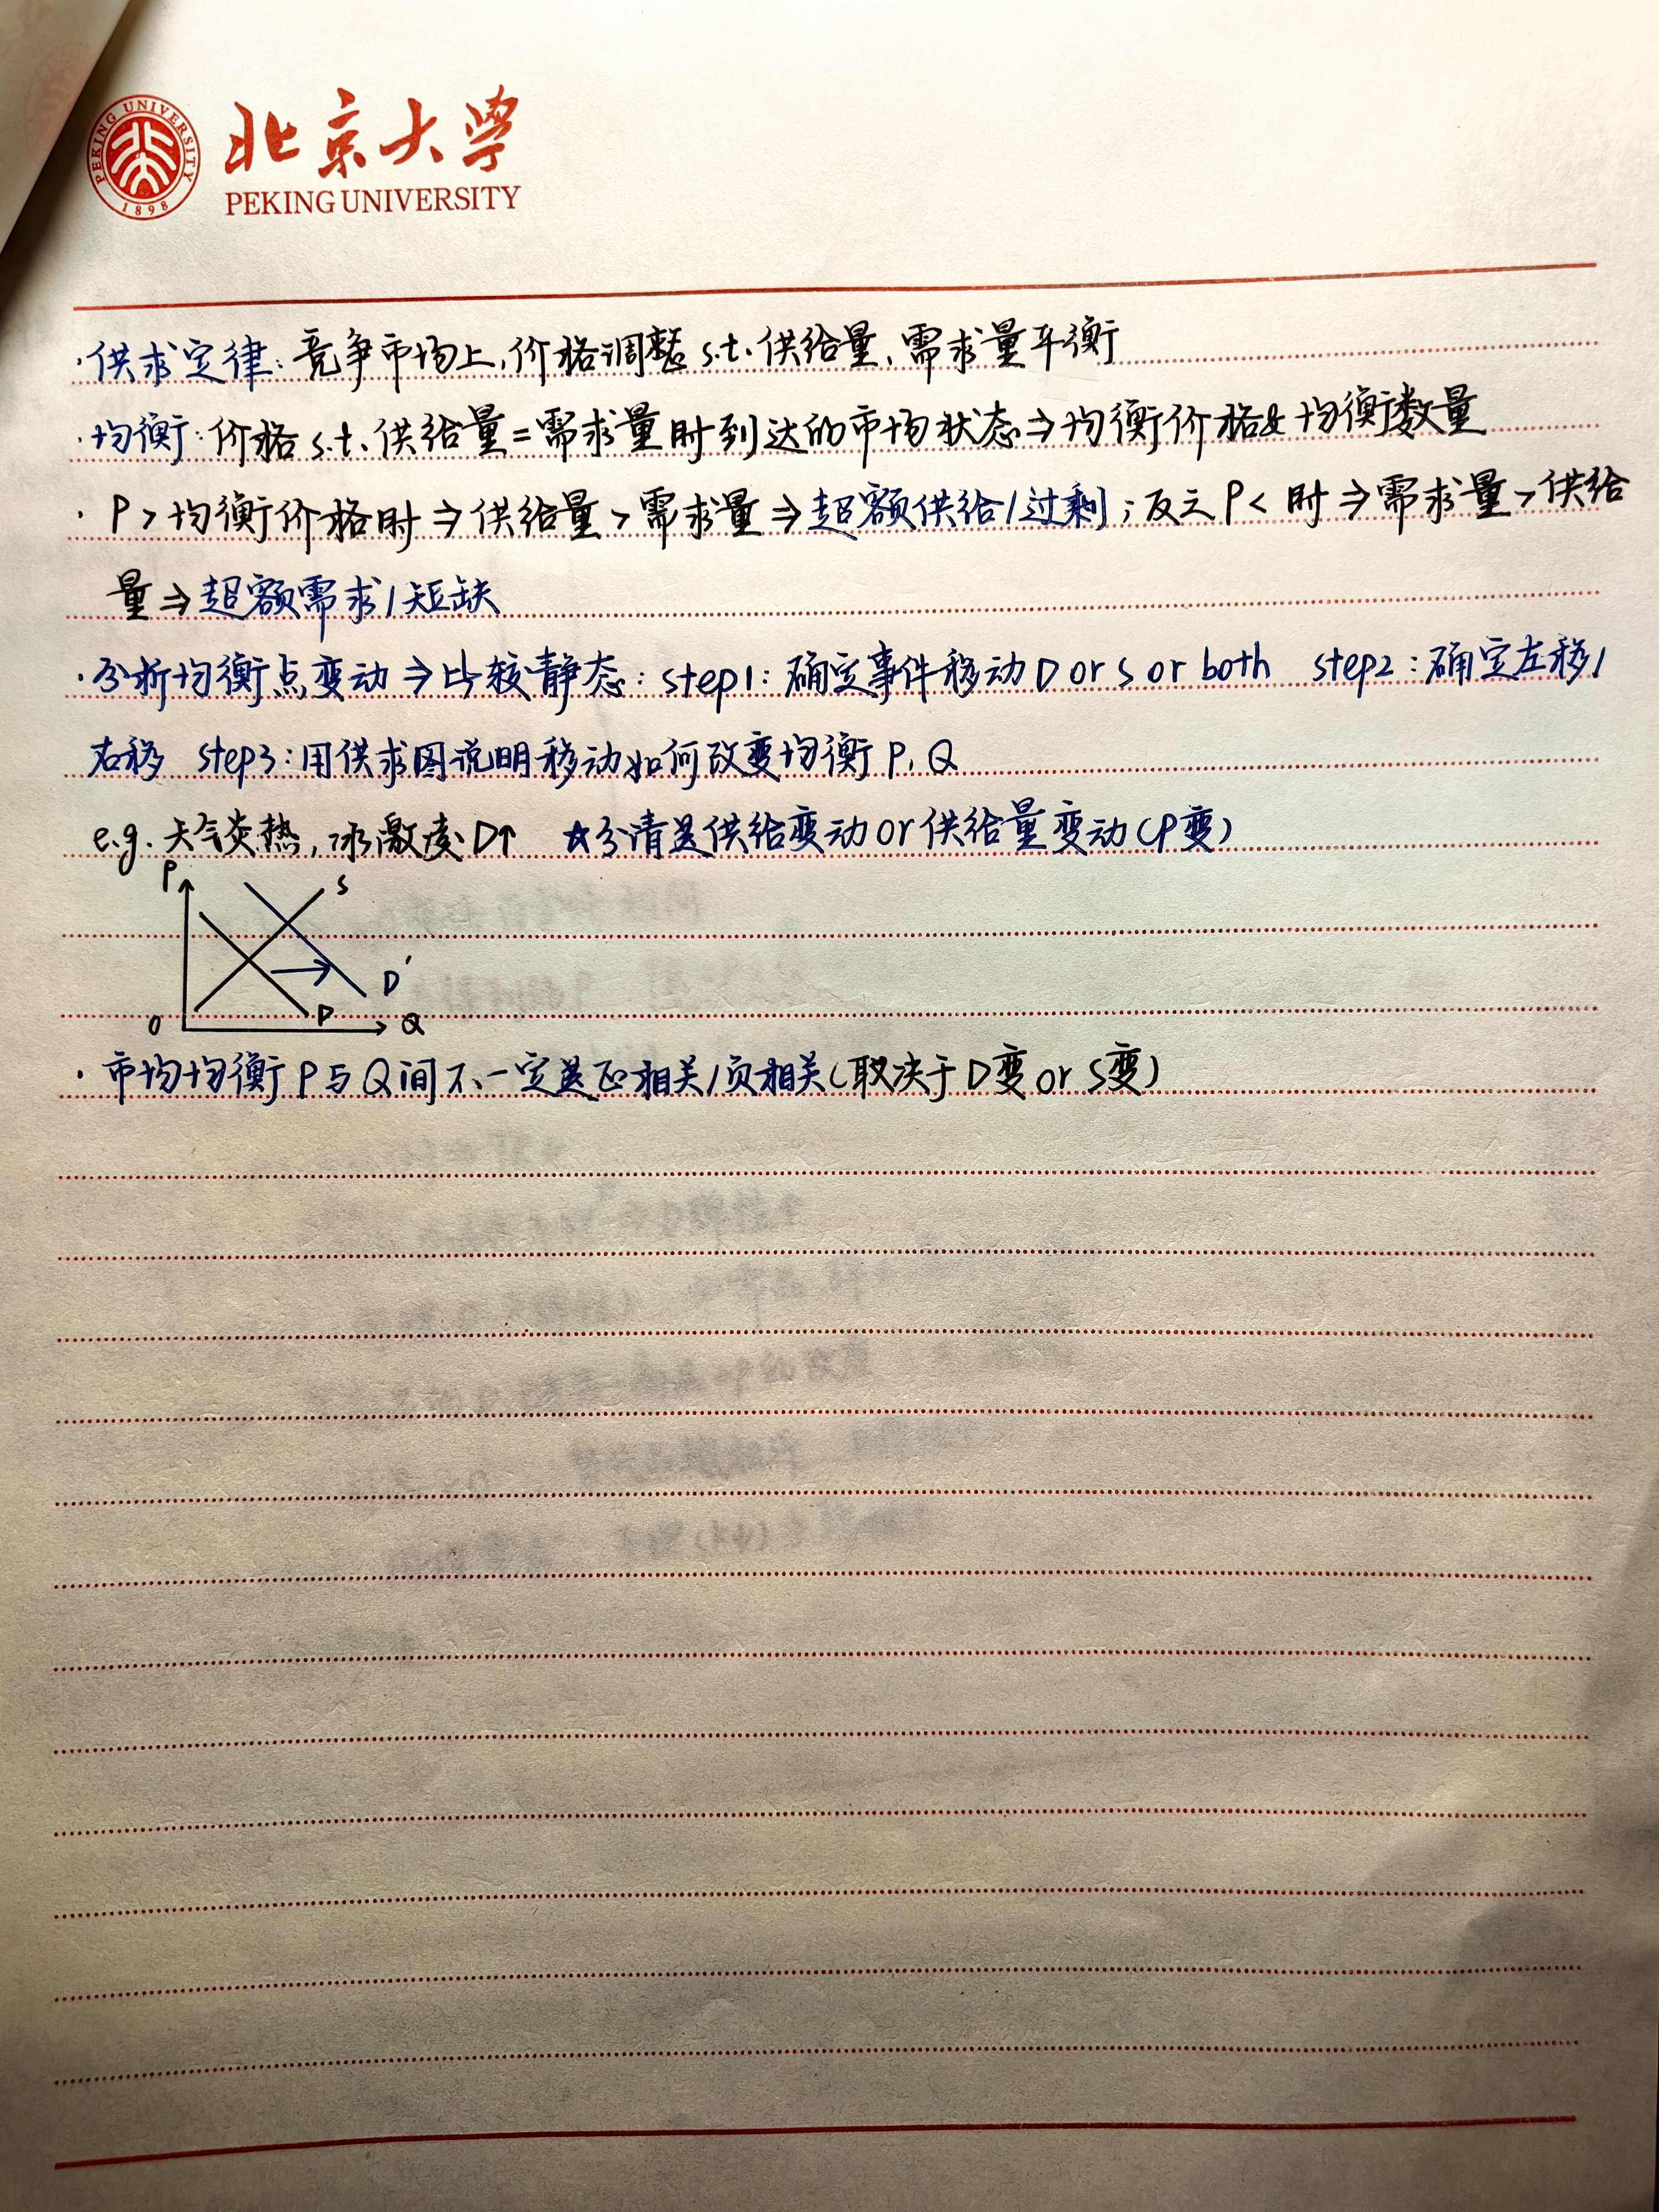 PEKING UNIVERSITY
1898
北京大学
PEKING UNIVERSITY
·供求定律:竞争市场上,价格调整 s.t. 供给量、需求量平衡
·均衡:价格 s.t. 供给量=需求量时到达的市场状态⇒均衡价格&均衡数量
· P>均衡价格时⇒供给量>需求量⇒超额供给/过剩;反之 P< 时⇒需求量>供给
量⇒超额需求/短缺
·分析均衡点变动⇒比较静态:step1:确定事件移动 D or S or both step2:确定左移/
右移 step3:用供求图说明移动如何改变均衡 P、Q
e.g. 天气炎热,冰激凌D↑ ☆分清是供给变动 or 供给量变动(P变)
P
S
D'
D
O
Q
· 市场均衡 P 与 Q 间不一定是正相关/负相关(取决于 D变 or S变)